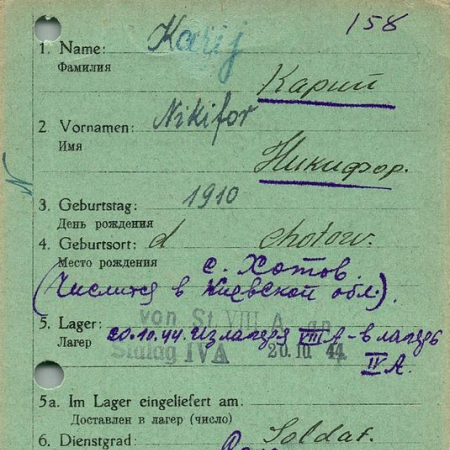 158
1. Name: Karij
Фамилия
Карий
2. Vornamen: Nikifor
Имя
Никифор.
3. Geburtstag: 1910
День рождения
4. Geburtsort: d chotow.
Место рождения с. Хотов.
(Числится в Киевской обл.).
von St. VIII A an
5. Lager: 20.10.44. Из лагеря VIII A - в лагерь
Лагерь
Stalag IV A 20. 10 44
IV A.
5a. Im Lager eingeliefert am:
Доставлен в лагерь (число)
6. Dienstgrad: Soldat.